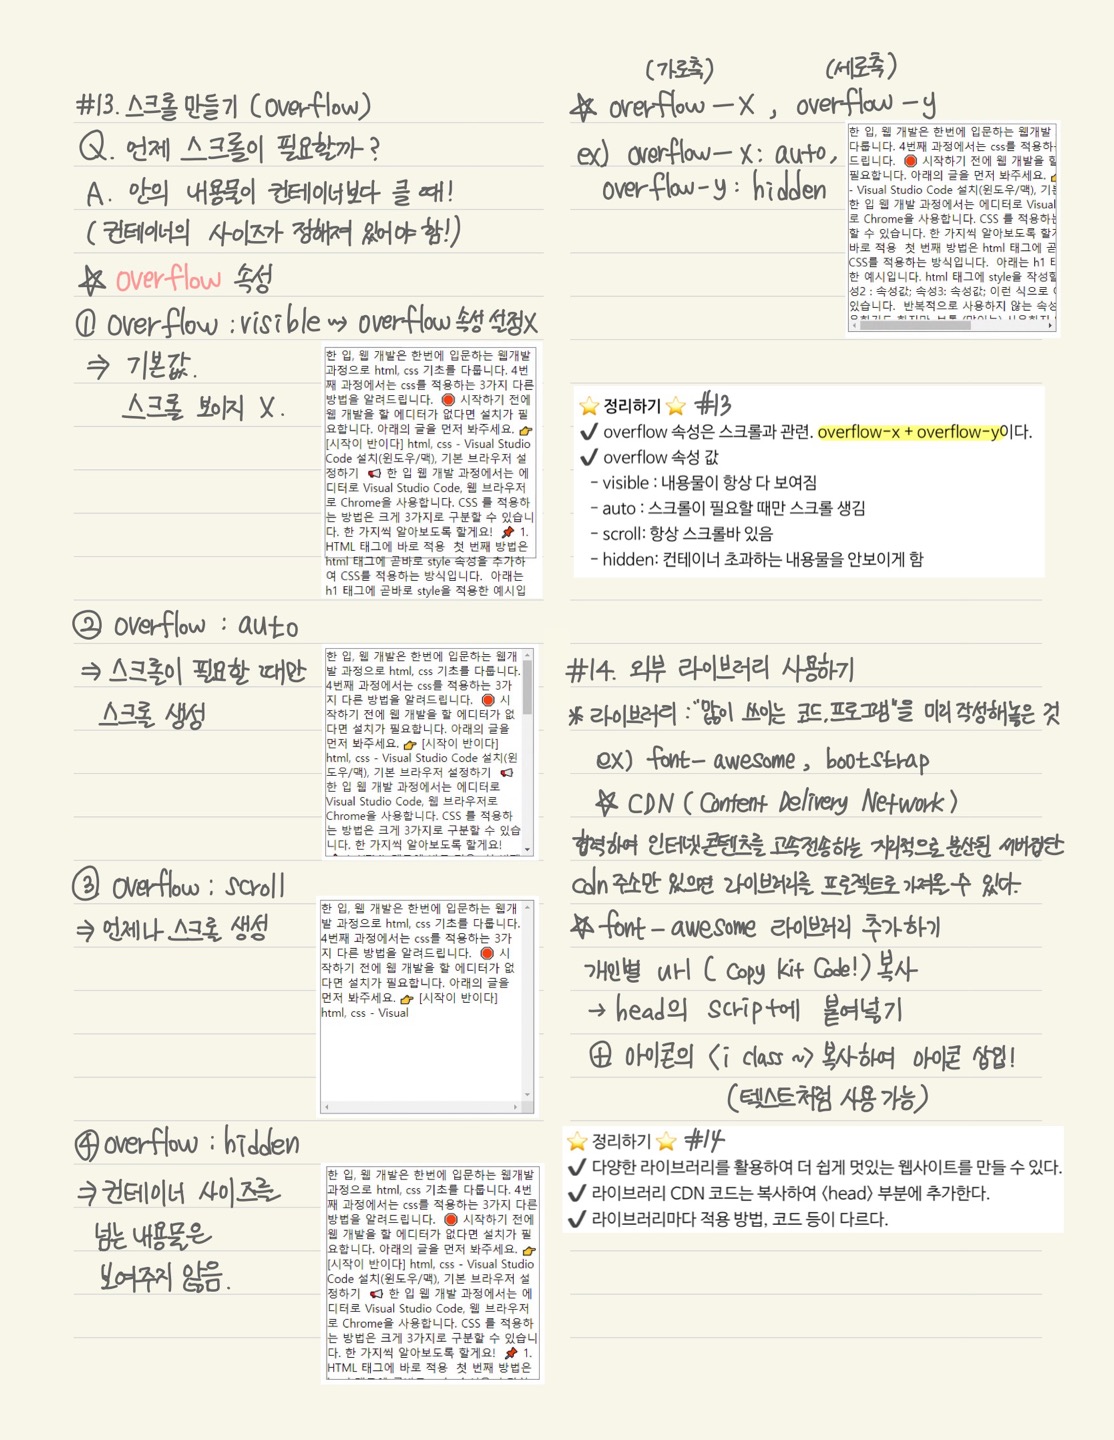 #13. 스크롤 만들기 (overflow)
Q. 언제 스크롤이 필요할까?
A. 안의 내용물이 컨테이너보다 클 때!
(컨테이너의 사이즈가 정해져 있어야 함!)
☆ overflow 속성
① overflow : visible ~> overflow 속성 설정X
⇒ 기본값.
스크롤 보이지 X.
한 입, 웹 개발은 한번에 입문하는 웹개발
과정으로 html, css 기초를 다룹니다. 4번
째 과정에서는 css를 적용하는 3가지 다른
방법을 알려드립니다. 🛑 시작하기 전에
웹 개발을 할 에디터가 없다면 설치가 필
요합니다. 아래의 글을 먼저 봐주세요. 👉
[시작이 반이다] html, css - Visual Studio
Code 설치(윈도우/맥), 기본 브라우저 설
정하기 📢 한 입 웹 개발 과정에서는 에
디터로 Visual Studio Code, 웹 브라우저
로 Chrome을 사용합니다. CSS 를 적용하
는 방법은 크게 3가지로 구분할 수 있습니
다. 한 가지씩 알아보도록 할게요! 📌 1.
HTML 태그에 바로 적용 첫 번째 방법은
html 태그에 곧바로 style 속성을 추가하
여 CSS를 적용하는 방식입니다. 아래는
h1 태그에 곧바로 style을 적용한 예시입
② overflow : auto
⇒ 스크롤이 필요할 때만
스크롤 생성
한 입, 웹 개발은 한번에 입문하는 웹개
발 과정으로 html, css 기초를 다룹니다.
4번째 과정에서는 css를 적용하는 3가
지 다른 방법을 알려드립니다. 🛑 시
작하기 전에 웹 개발을 할 에디터가 없
다면 설치가 필요합니다. 아래의 글을
먼저 봐주세요. 👉 [시작이 반이다]
html, css - Visual Studio Code 설치(윈
도우/맥), 기본 브라우저 설정하기 📢
한 입 웹 개발 과정에서는 에디터로
Visual Studio Code, 웹 브라우저로
Chrome을 사용합니다. CSS 를 적용하
는 방법은 크게 3가지로 구분할 수 있습
니다. 한 가지씩 알아보도록 할게요!
③ overflow : scroll
⇒ 언제나 스크롤 생성
한 입, 웹 개발은 한번에 입문하는 웹개
발 과정으로 html, css 기초를 다룹니다.
4번째 과정에서는 css를 적용하는 3가
지 다른 방법을 알려드립니다. 🛑 시
작하기 전에 웹 개발을 할 에디터가 없
다면 설치가 필요합니다. 아래의 글을
먼저 봐주세요. 👉 [시작이 반이다]
html, css - Visual
④ overflow : hidden
⇒ 컨테이너 사이즈를
넘는 내용물은
보여주지 않음.
한 입, 웹 개발은 한번에 입문하는 웹개발
과정으로 html, css 기초를 다룹니다. 4번
째 과정에서는 css를 적용하는 3가지 다른
방법을 알려드립니다. 🛑 시작하기 전에
웹 개발을 할 에디터가 없다면 설치가 필
요합니다. 아래의 글을 먼저 봐주세요. 👉
[시작이 반이다] html, css - Visual Studio
Code 설치(윈도우/맥), 기본 브라우저 설
정하기 📢 한 입 웹 개발 과정에서는 에
디터로 Visual Studio Code, 웹 브라우저
로 Chrome을 사용합니다. CSS 를 적용하
는 방법은 크게 3가지로 구분할 수 있습니
다. 한 가지씩 알아보도록 할게요! 📌 1.
HTML 태그에 바로 적용 첫 번째 방법은
(가로축) (세로축)
☆ overflow - x , overflow - y
ex) overflow - x : auto,
overflow-y : hidden
한 입, 웹 개발은 한번에 입문하는 웹개발
다룹니다. 4번째 과정에서는 css를 적용하
드립니다. 🛑 시작하기 전에 웹 개발을 할
필요합니다. 아래의 글을 먼저 봐주세요. 👉
- Visual Studio Code 설치(윈도우/맥), 기본
한 입 웹 개발 과정에서는 에디터로 Visual
로 Chrome을 사용합니다. CSS 를 적용하는
할 수 있습니다. 한 가지씩 알아보도록 할게
바로 적용 첫 번째 방법은 html 태그에 곧
CSS를 적용하는 방식입니다. 아래는 h1 태
한 예시입니다. html 태그에 style을 작성할
성2 : 속성값; 속성3: 속성값; 이런 식으로
있습니다. 반복적으로 사용하지 않는 속성
⭐ 정리하기 ⭐ #13
✔ overflow 속성은 스크롤과 관련. overflow-x + overflow-y이다.
✔ overflow 속성 값
- visible : 내용물이 항상 다 보여짐
- auto : 스크롤이 필요할 때만 스크롤 생김
- scroll: 항상 스크롤바 있음
- hidden: 컨테이너 초과하는 내용물을 안보이게 함
#14. 외부 라이브러리 사용하기
* 라이브러리 : "많이 쓰이는 코드,프로그램"을 미리 작성해놓은 것
ex) font- awesome , bootstrap
☆ CDN ( Content Delivery Network )
협력하여 인터넷 콘텐츠를 고속전송하는 지리적으로 분산된 서버집단
cdn 주소만 있으면 라이브러리를 프로젝트로 가져올 수 있다.
☆ font - awesome 라이브러리 추가하기
개인별 url ( Copy Kit Code! ) 복사
→ head의 script에 붙여넣기
⊕ 아이콘의 <i class ~> 복사하여 아이콘 삽입!
(텍스트처럼 사용 가능)
⭐ 정리하기 ⭐ #14
✔ 다양한 라이브러리를 활용하여 더 쉽게 멋있는 웹사이트를 만들 수 있다.
✔ 라이브러리 CDN 코드는 복사하여 <head> 부분에 추가한다.
✔ 라이브러리마다 적용 방법, 코드 등이 다르다.